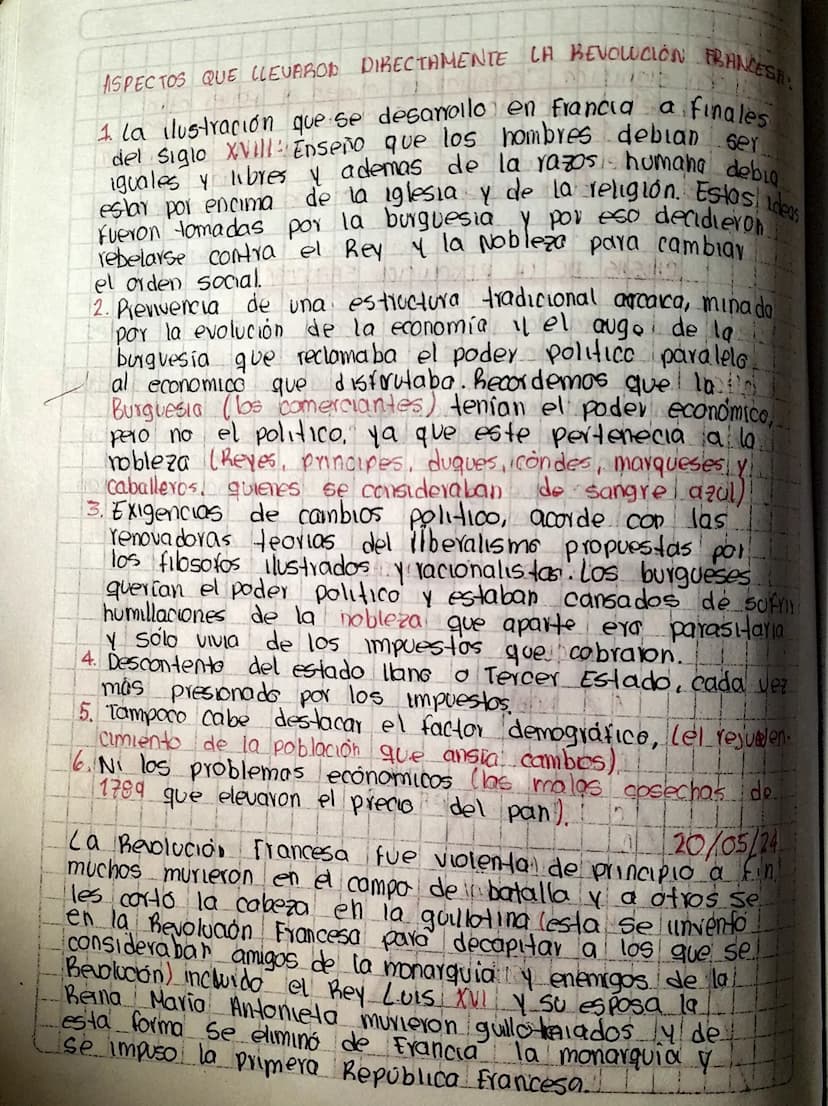 ASPECTOS QUE LLEVAROD DIRECTAMENTE LA REVOLUCIÓN FRANCESA:
1. La ilustración que se desarrollo en Francia a finales
del siglo XVIII: Enseño que los hombres debian ser
iguales y libres y ademas de la razos humana debia
estar por encima de la iglesia y de la religión. Estas ideas
fueron tomadas por la burguesia y por eso decidieron
rebelarse contra el Rey y la Nobleza para cambiar
el orden social.
2. Pievivencia de una estructura tradicional arcaica, minada
por la evolución de la economía y el auge de la
burguesía que reclamaba el poder politico paralelo
al economico que disfrutaba. Recordemos que la
Burguesia (los comerciantes) tenían el poder económico,
pero no el politico, ya que este pertenecia a la
nobleza (Reyes, principes, duques, condes, marqueses y
caballeros, quienes se consideraban de sangre azul)
3. Exigencias de cambios político, acorde con las
renovadoras teorias del liberalismo propuestas por
los filosofos ilustrados y racionalistas. Los burgueses
querian el poder politico y estaban cansados de sufrir
humillaciones de la nobleza que aparte era parasitaria
y sólo vivia de los impuestos que cobraron.
4. Descontento del estado llano o Tercer Estado, cada vez
más presionado por los impuestos.
5. Tampoco cabe destacar el factor demográfico, (el rejuven-
cimiento de la población que ansia cambios)
6. Ni los problemas económicos (las malas cosechas de
1789 que elevaron el precio del pan).
20/05/24
La Revolución Francesa fue violenta de principio a fin
muchos murieron en el campo de batalla y a otros se
les cortó la cabeza en la goullotina (esta se invento
en la Revolución Francesa para decapitar a los que se
consideraban amigos de la monarquia y enemigos de la
Revolución) incluido el Rey Luis XVI y su esposa la
Reina Maria Antonieta murieron gullotinados y de
esta forma se eliminó de Francia la monarquia y
se impuso la primera República Francesa.